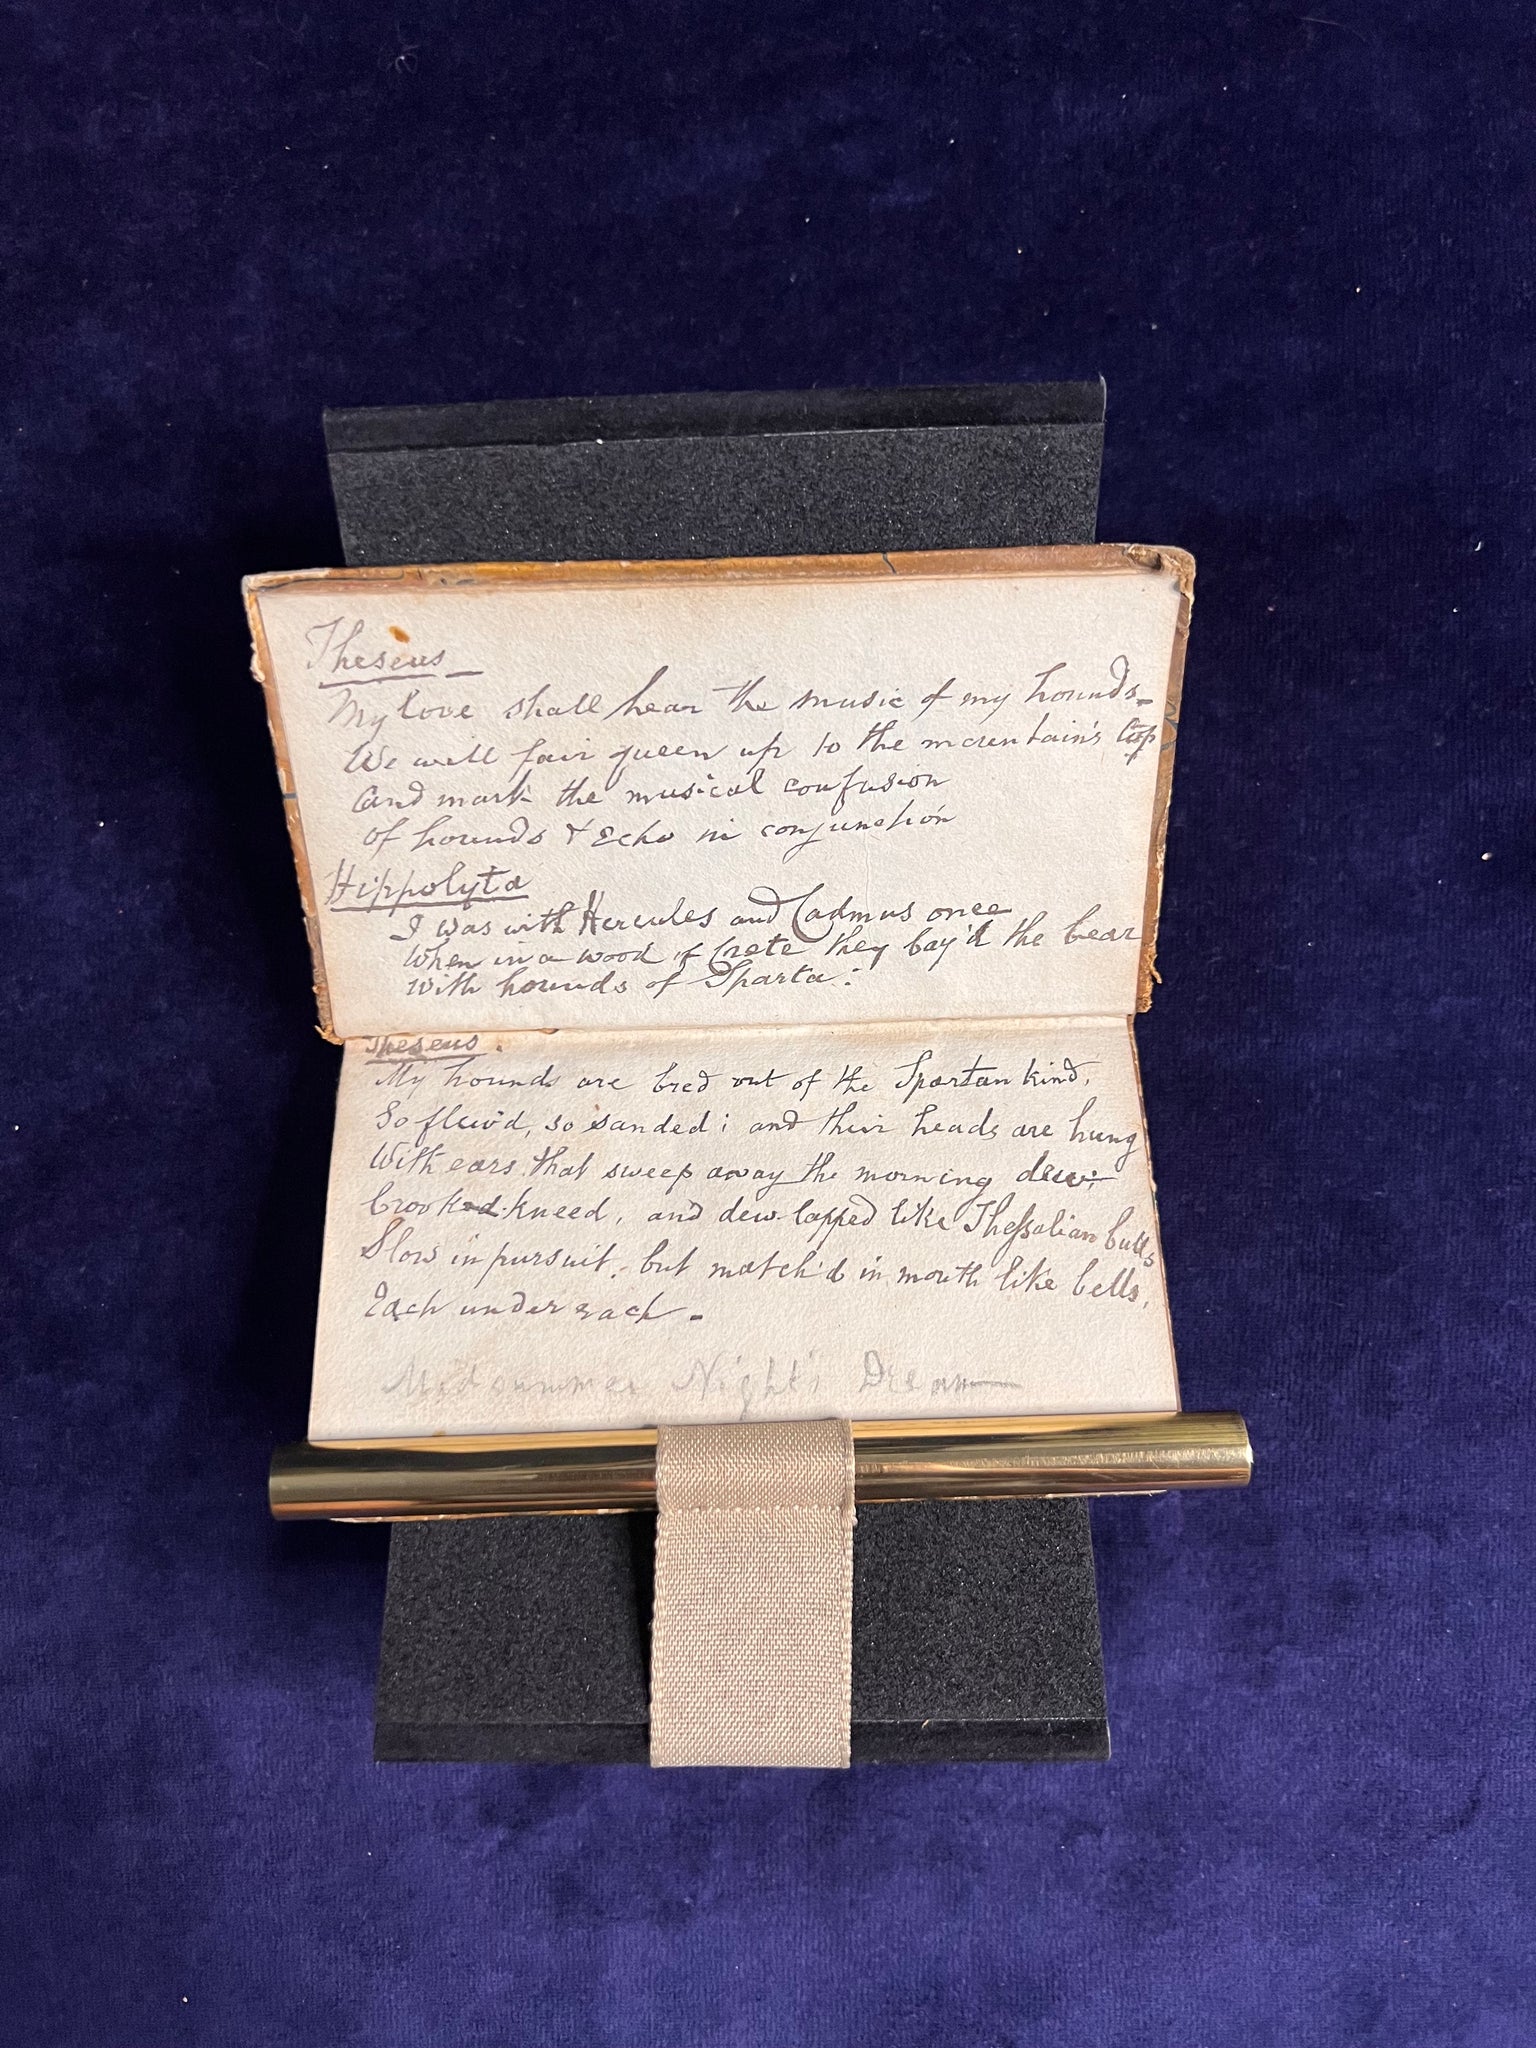 Theseus
My love shall hear the music of my hounds-
We will fair queen up to the mountain's top
And mark the musical confusion
of hounds & Echo in conjunction
Hippolyta
I was with Hercules and Cadmus once
When in a wood of Crete they bay'd the bear
With hounds of Sparta:
Theseus.
My hounds are bred out of the Spartan kind,
So flew'd, so sanded; and their heads are hung
With ears that sweep away the morning dew;
Crook-kneed, and dew-lapped like Thessalian bulls
Slow in pursuit, but match'd in mouth like bells,
Each under each.-
Midsummer Night's Dream